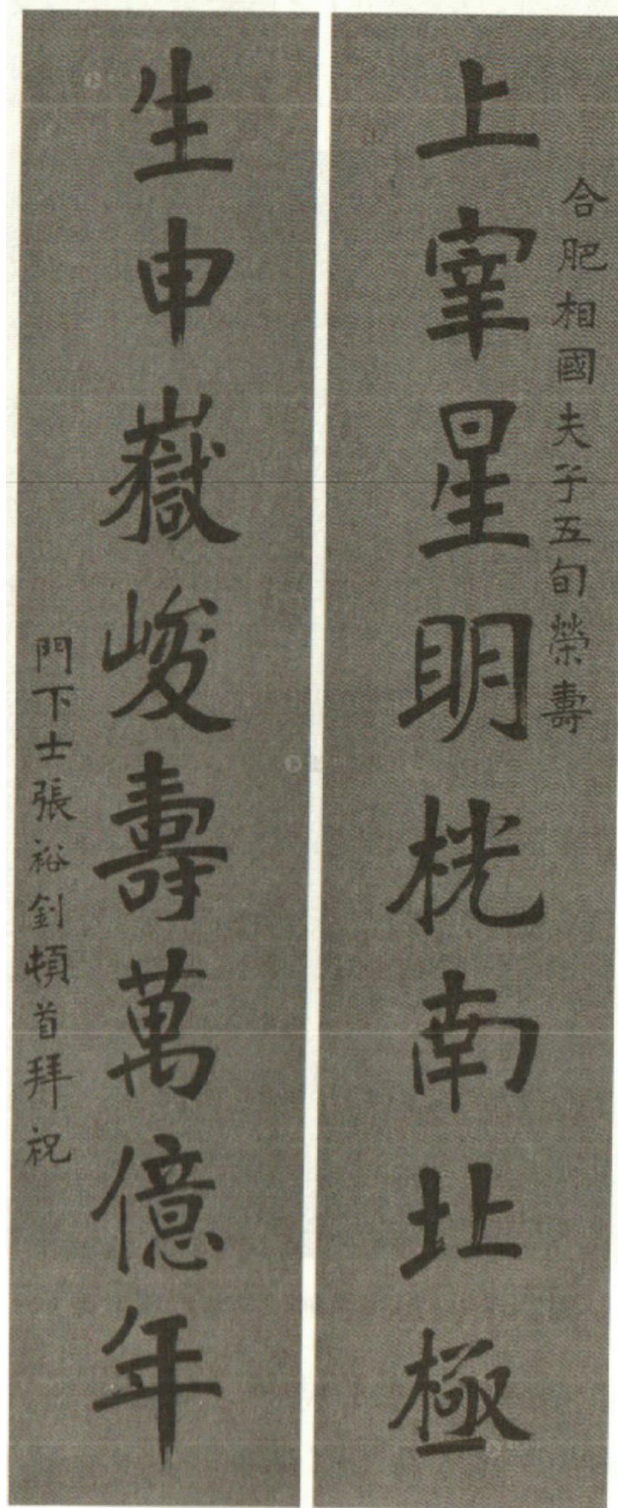 合肥相國夫子五旬榮壽
上宰星明桄南北極
生申嶽峻壽萬億年
門下士張裕釗頓首拜祝